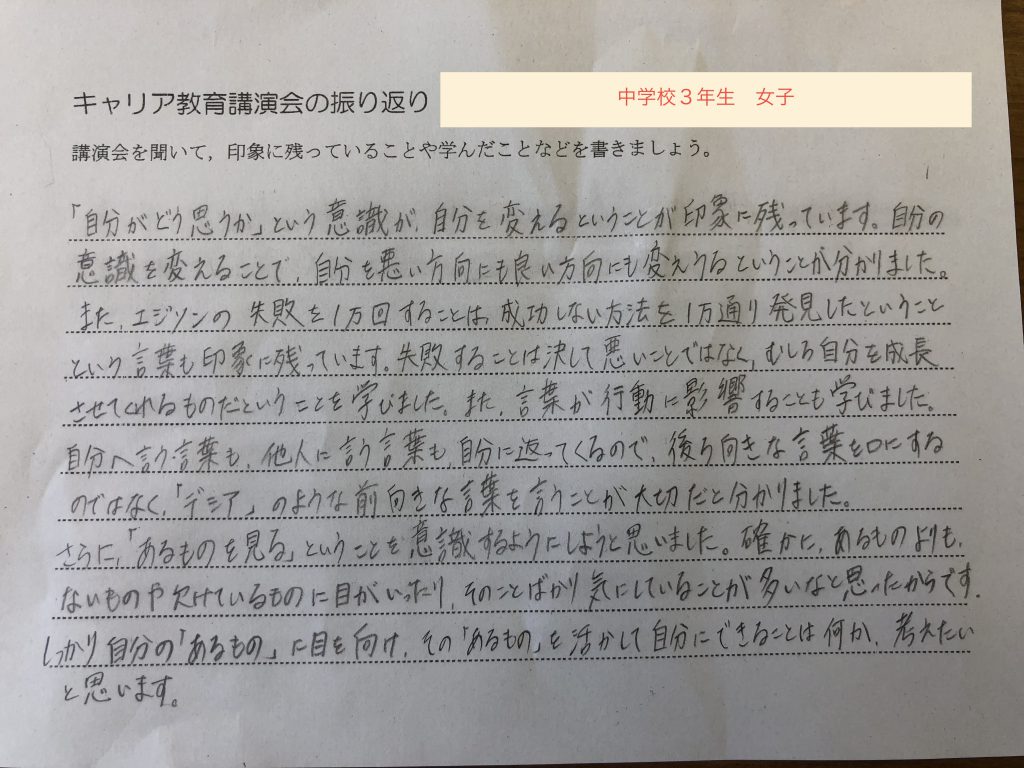 キャリア教育講演会の振り返り
中学校３年生　女子
講演会を聞いて，印象に残っていることや学んだことなどを書きましょう。
「自分がどう思うか」という意識が、自分を変えるということが印象に残っています。自分の
意識を変えることで、自分を悪い方向にも良い方向にも変えうるということが分かりました。
また、エジソンの失敗を1万回することは、成功しない方法を1万通り発見したということ
という言葉も印象に残っています。失敗することは決して悪いことではなく、むしろ自分を成長
させてくれるものだということを学びました。また、言葉が行動に影響することも学びました。
自分へ言う言葉も、他人に言う言葉も、自分に返ってくるので、後ろ向きな言葉を口にする
のではなく、「デシア」のような前向きな言葉を言うことが大切だと分かりました。
さらに、「あるものを見る」ということを意識するようにしようと思いました。確かに、あるものよりも、
ないものや欠けているものに目がいったり、そのことばかり気にしていることが多いなと思ったからです。
しっかり自分の「あるもの」に目を向け、その「あるもの」を活かして自分にできることは何か、考えたい
と思います。